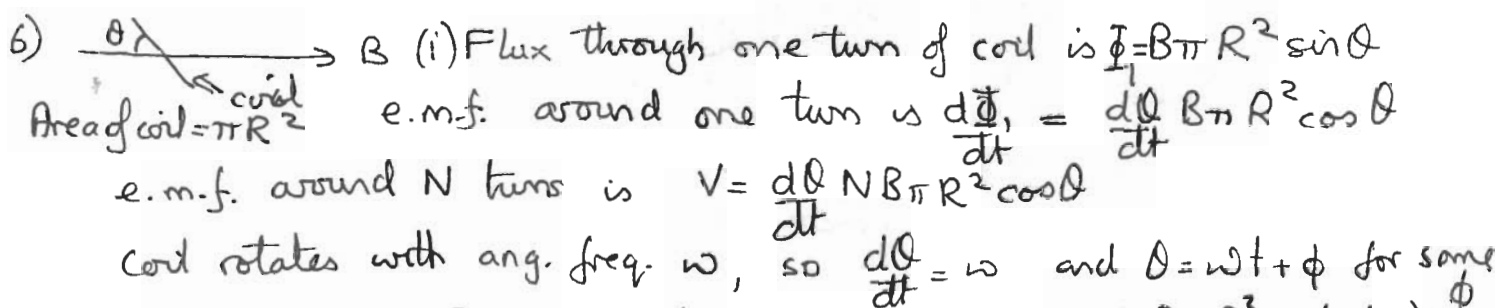 6) θ B (i) Flux through one turn of coil is Φ₁=BπR² sinθ
coil
Area of coil = πR² e.m.f. around one turn is dΦ₁/dt = dθ/dt BπR² cosθ
e.m.f. around N turns is V = dθ/dt NBπR² cosθ
Coil rotates with ang. freq. ω, so dθ/dt = ω and θ = ωt + ϕ for some
ϕ